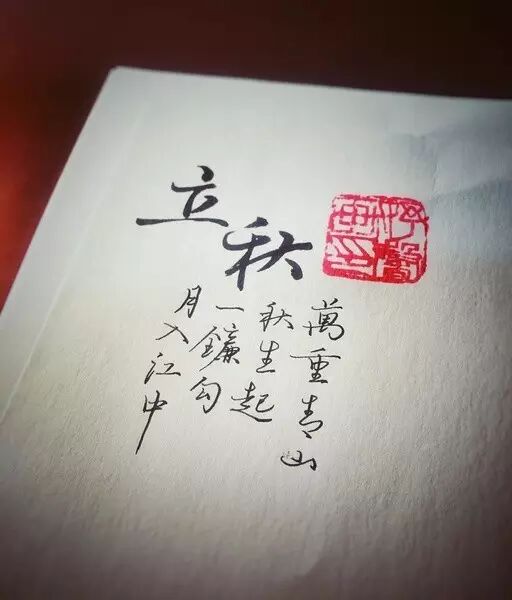 立秋
萬重青山
秋生起
一鐮勾
月入江中